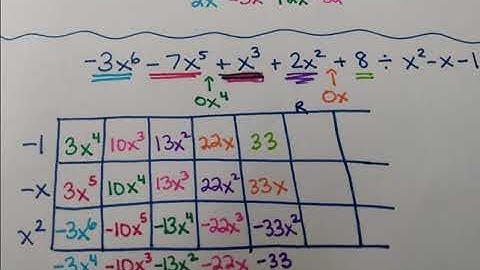 -3x⁶ - 7x⁵ + x³ + 2x² + 8 ÷ x² - x - 1
0x⁴ R 0x
-1 3x⁴ 10x³ 13x² 22x 33
-x 3x⁵ 10x⁴ 13x³ 22x² 33x
x² -3x⁶ -10x⁵ -13x⁴ -22x³ -33x²
-3x⁴ -10x³ -13x² -22x -33